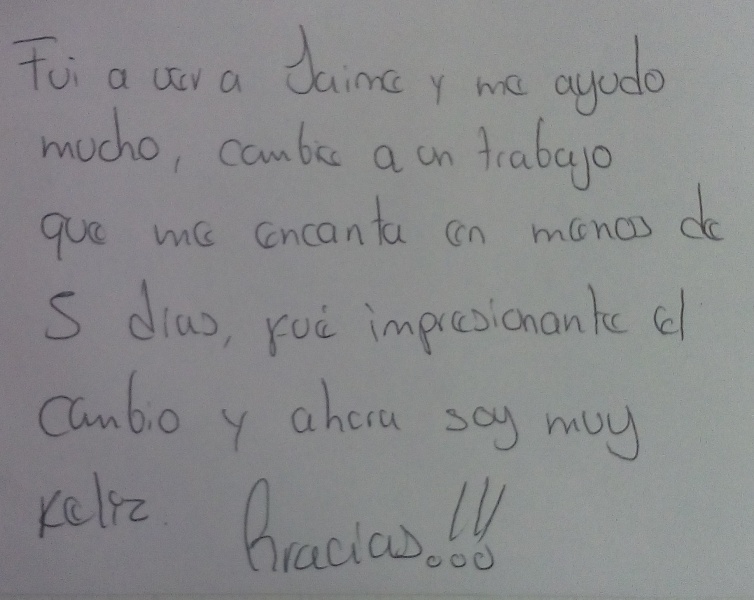 Fui a ver a Jaime y me ayudo
mucho, cambie a un trabajo
que me encanta en menos de
5 dias, fué impresionante el
cambio y ahora soy muy
feliz. Gracias...!!!